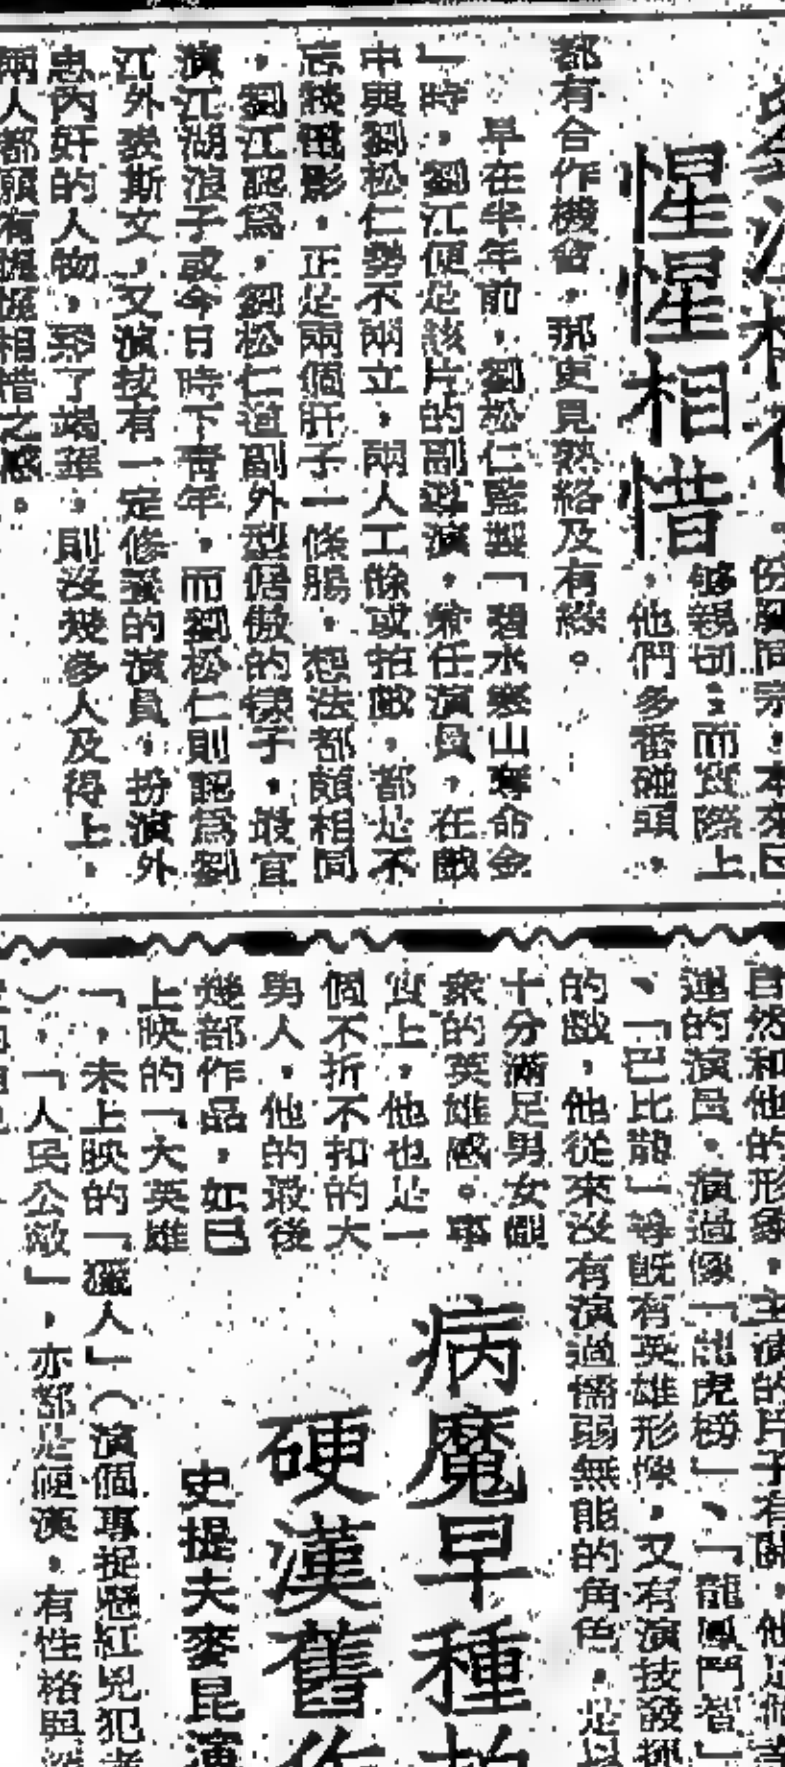 惺惺相惜
份屬同宗,本來已
够親切;而實際上
,他們多番碰頭,
都有合作機會,那更見熟絡及有緣。
早在半年前,劉松仁監製「碧水寒山奪命金
」時,劉江便是該片的副導演,兼任演員,在戲
中與劉松仁勢不兩立,兩人工餘或拍戲,都是不
忘談電影,正是兩個肝子一條腸,想法都頗相同
,劉江認爲,劉松仁這副外型倨傲的樣子,最宜
演江湖浪子或今日時下靑年,而劉松仁則認爲劉
江外表斯文,又演技有一定修養的演員,扮演外
忠內奸的人物,除了 則沒幾多人及得上,
兩人都頗有惺惺相惜之感。
自然和他的形象,主演的片子有關,他是個
運的演員。演過像「龍虎榜」、「龍鳳鬥智」
、「巴比龍」等旣有英雄形像,又有演技發揮
的戲,他從來沒有演過懦弱無能的角色,是以
十分滿足男女觀
衆的英雄感。事
實上,他也是一
個不折不扣的大
男人,他的最後
幾部作品,如已
上映的「大英雄
「,未上映的「獵人」(演個專捉懸紅兇犯者
),「人民公敵」,亦都是硬漢,有性格與
病魔早種
硬漢舊作
史提夫麥昆演